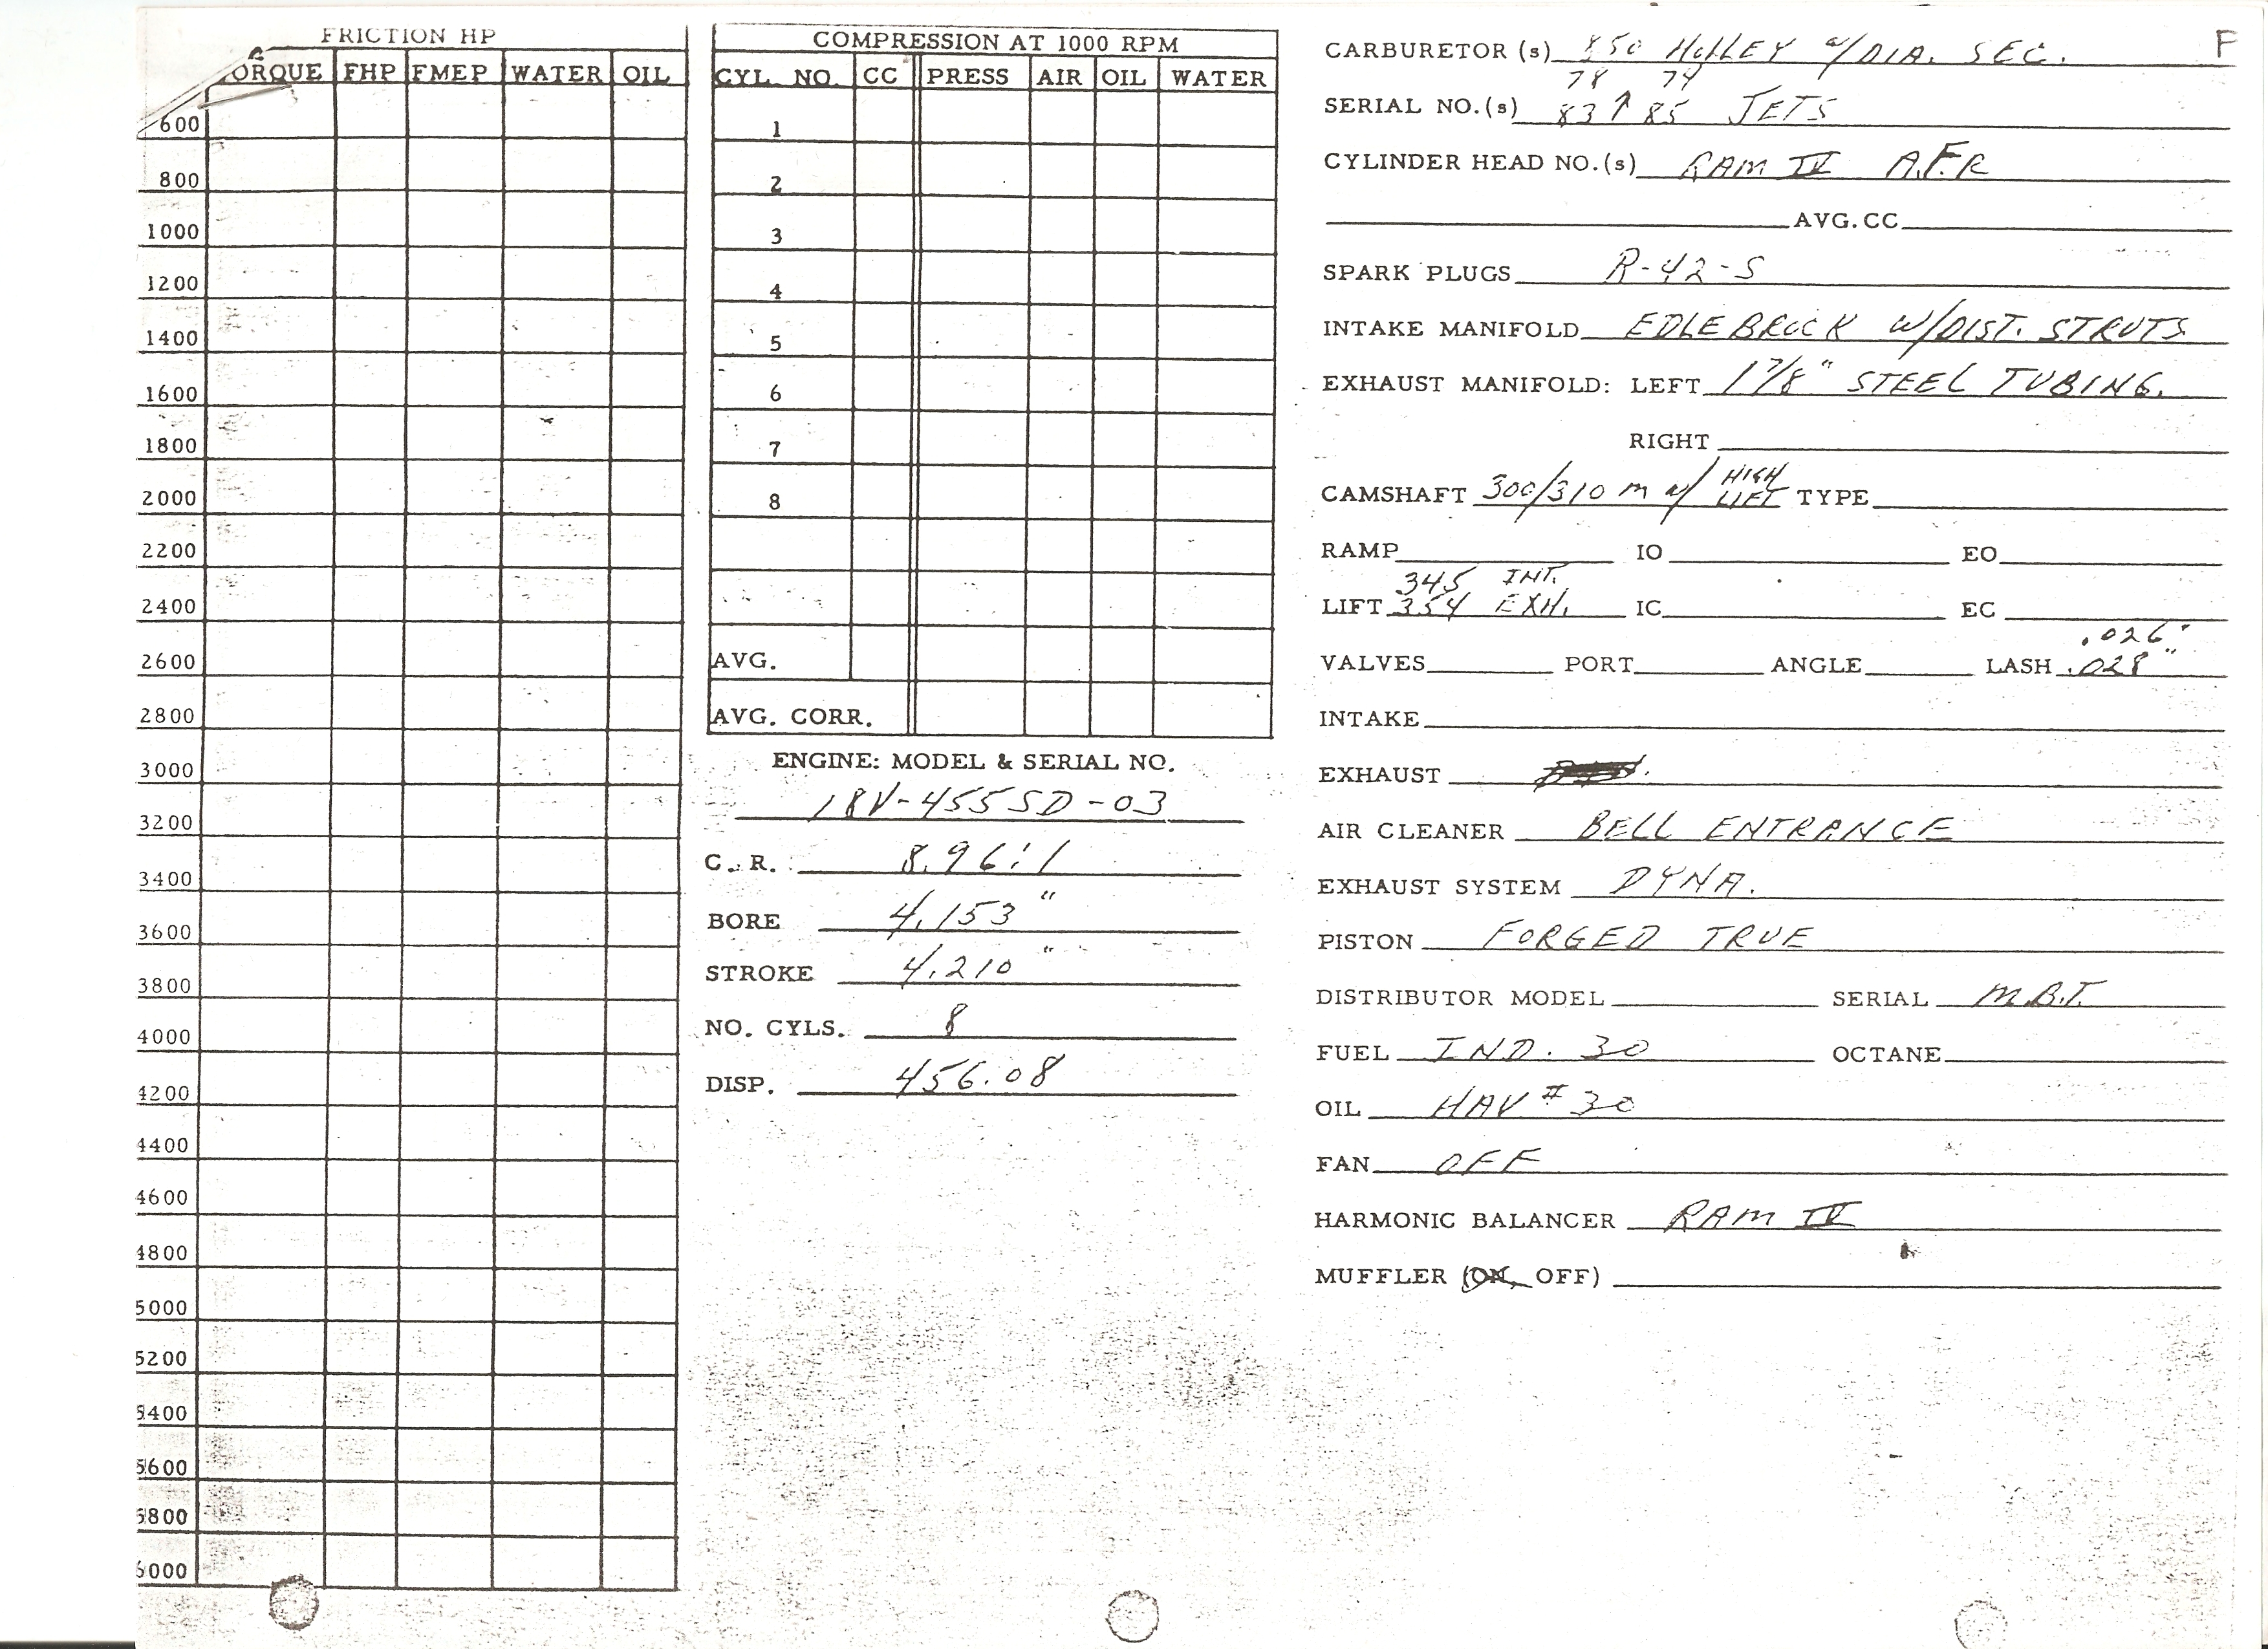 FRICTION HP
TORQUE FHP FMEP WATER OIL
600
800
1000
1200
1400
1600
1800
2000
2200
2400
2600
2800
3000
3200
3400
3600
3800
4000
4200
4400
4600
4800
5000
5200
5400
5600
5800
6000
COMPRESSION AT 1000 RPM
CYL. NO. CC PRESS AIR OIL WATER
1
2
3
4
5
6
7
8
AVG.
AVG. CORR.
ENGINE: MODEL & SERIAL NO.
18V-455SD-03
C. R. 8.96:1
BORE 4.153"
STROKE 4.210"
NO. CYLS. 8
DISP. 456.08
F
CARBURETOR (s) 850 HOLLEY w/DIA. SEC.
78 74
SERIAL NO.(s) 83↑85 JETS
CYLINDER HEAD NO.(s) RAM IV A.F.R
AVG. CC
SPARK PLUGS R-42-S
INTAKE MANIFOLD EDLEBROCK W/DIST. STRUTS
EXHAUST MANIFOLD: LEFT 1 7/8" STEEL TUBING.
RIGHT
CAMSHAFT 300/310 M w/ HIGH LIFT TYPE
RAMP IO EO
345 INT.
LIFT 354 EXH. IC EC
.026"
VALVES PORT ANGLE LASH .028"
INTAKE
EXHAUST
AIR CLEANER BELL ENTRANCE
EXHAUST SYSTEM DYNA.
PISTON FORGED TRUE
DISTRIBUTOR MODEL SERIAL M.B.T.
FUEL IND. 30 OCTANE
OIL HAV #30
FAN OFF
HARMONIC BALANCER RAM IV
MUFFLER (ON, OFF)